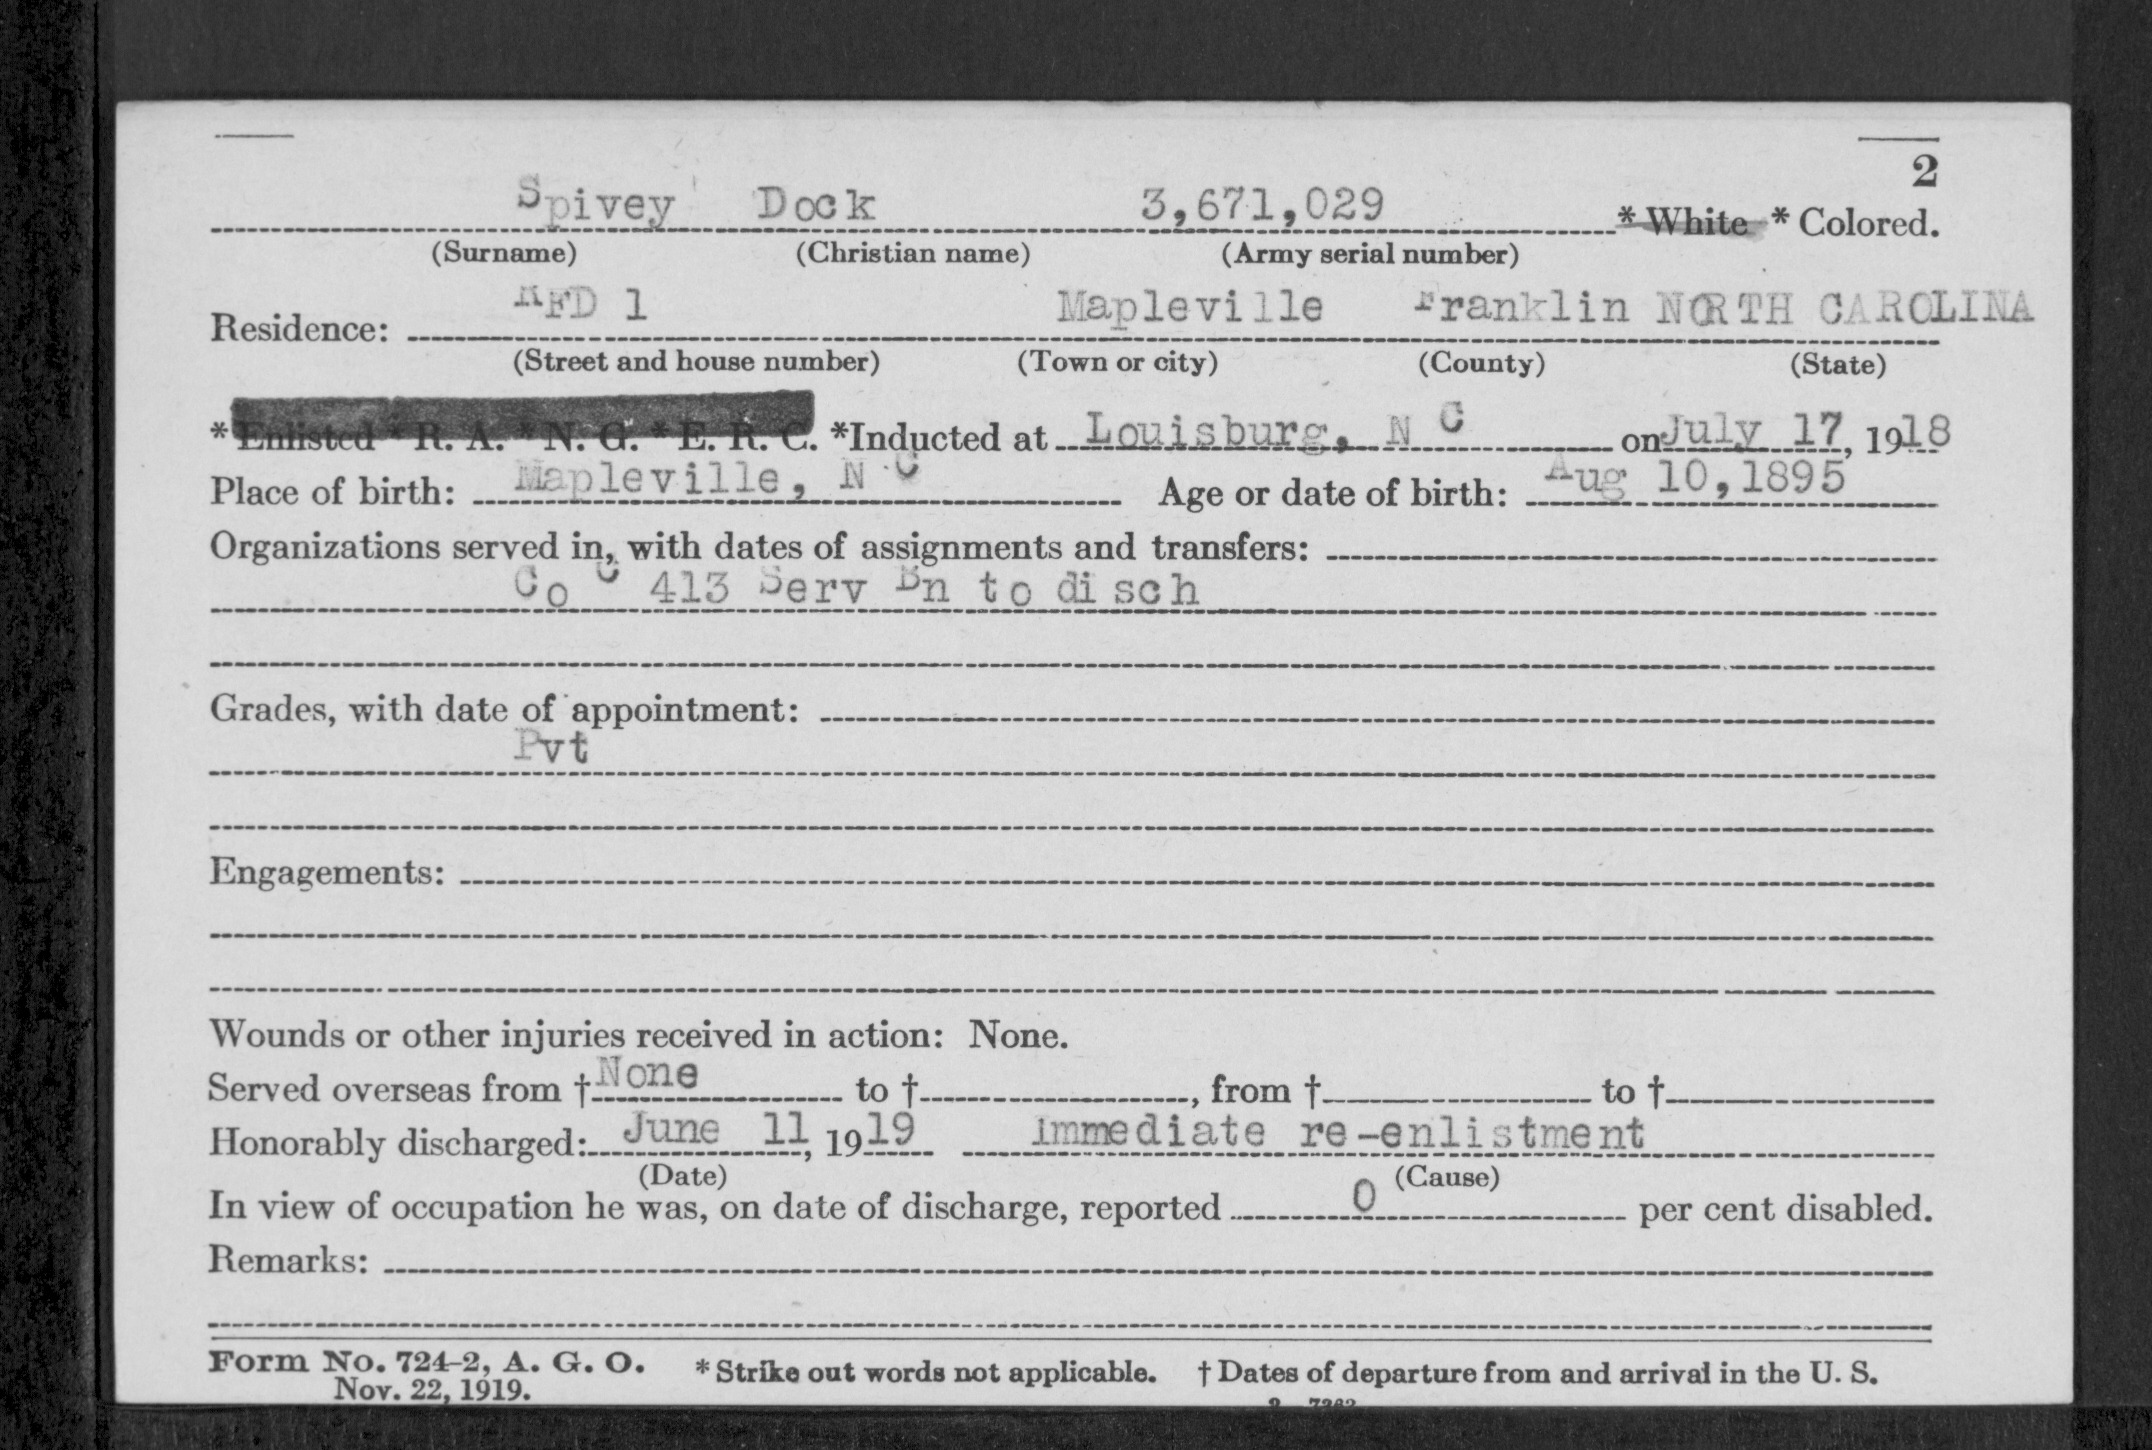 2
Spivey Dock 3,671,029 * White * Colored.
(Surname) (Christian name) (Army serial number)
Residence: RFD 1 Mapleville Franklin NORTH CAROLINA
(Street and house number) (Town or city) (County) (State)
* Enlisted * R. A. * N. G. * E. R. C. *Inducted at Louisburg, N C on July 17, 1918
Place of birth: Mapleville, N C Age or date of birth: Aug 10,1895
Organizations served in, with dates of assignments and transfers:
Co C 413 Serv Bn to disch
Grades, with date of appointment:
Pvt
Engagements:
Wounds or other injuries received in action: None.
Served overseas from † None to †, from † to †
Honorably discharged: June 11, 1919 Immediate re-enlistment
(Date) (Cause)
In view of occupation he was, on date of discharge, reported 0 per cent disabled.
Remarks:
Form No. 724-2, A. G. O. * Strike out words not applicable. † Dates of departure from and arrival in the U. S.
Nov. 22, 1919.